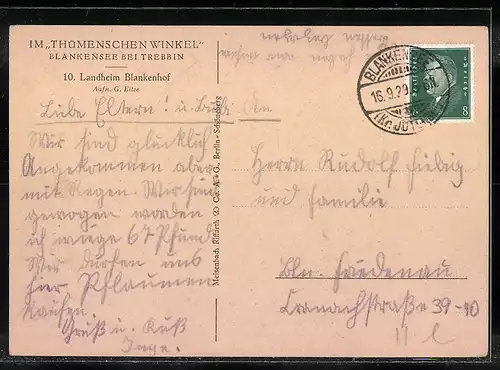 IM „THÜMENSCHEN WINKEL"
BLANKENSEE BEI TREBBIN
10. Landheim Blankenhof
Aufn. G. Eitze
Liebe Eltern! u. Bubi
An
Wir sind glücklich
Angekommen aber
mit Regen. Wir sind
gewogen worden
ich wiege 67 Pfund
Wir dürfen uns
hier Pflaumen
kaufen.
Gruß u. Kuß
Inge.
Meisenbach Riffarth & Co. A.-G., Berlin-Schöneberg
BLANKENSEE
16.9.29
8
Herrn Rudolf Fiebig
und Familie
Bln. Friedenau
Cranachstraße 39-40
II. l